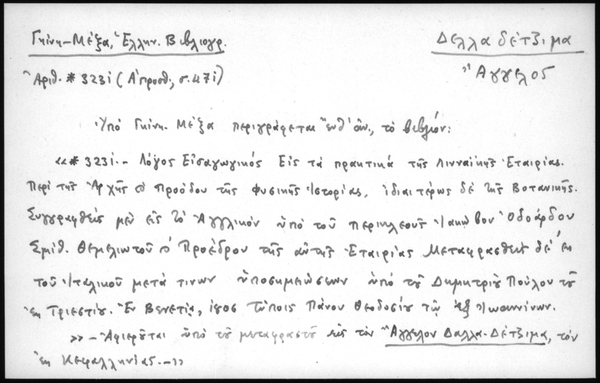 Γκίνη-Μέξα, Ἑλλην. Βιβλιογρ.
Δελλαδέτζιμα
Ἀριθ. # 323i (Α' προσθ., σ. 47i)
Ἄγγελος
Ὑπό Γκίνη-Μέξα περιγράφεται ἔνθ' ἀν., τό βιβλίον:
«# 323i.- Λόγος Εἰσαγωγικός Εἰς τά πρακτικά τῆς Λινναϊκῆς Ἑταιρίας.
Περί τῆς Ἀρχῆς & προόδου τῆς φυσικῆς Ἱστορίας, ἰδιαιτέρως δέ τῆς Βοτανικῆς.
Συγγραφθείς μέν εἰς τό Ἀγγλικόν ὑπό τοῦ περικλεοῦς Ἰακώβου Ὀδοάρδου
Σμίθ. Θεμελιωτοῦ & Προέδρου τῆς αὐτῆς Ἑταιρίας Μεταφρασθείς δέ ἐκ
τοῦ Ἰταλικοῦ μετά τινων ὑποσημειώσεων ὑπό τοῦ Δημητρίου Πούλου τοῦ
ἐκ Τριεστίου. Ἐν Βενετίᾳ, Τύποις Πάνου Θεοδοσίου τοῦ ἐξ Ἰωαννίνων.
»- Ἀφιεροῦται ὑπό τοῦ μεταφραστοῦ εἰς τόν Ἄγγελον Δαλλα-Δέτζιμα, τόν
ἐκ Κεφαλληνίας.-»